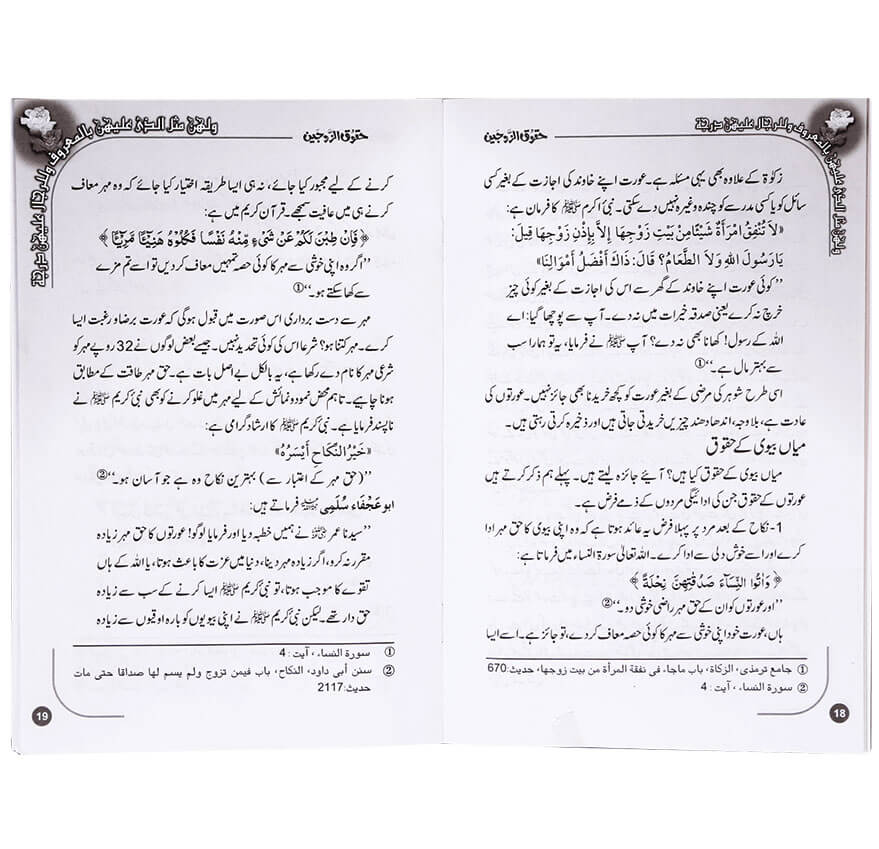 ولهن مثل الذى عليهن بالمعروف وللرجال عليهن درجة
حقوق الزوجین
زکوٰۃ کے علاوہ بھی یہی مسئلہ ہے۔ عورت اپنے خاوند کی اجازت کے بغیر کسی
سائل کو یا کسی مدرسے کو چندہ وغیرہ نہیں دے سکتی۔ نبی اکرم ﷺ کا فرمان ہے:
«لاَ تُنْفِقُ امْرَأَةٌ شَيْئًا مِنْ بَيْتِ زَوْجِهَا إِلاَّ بِإِذْنِ زَوْجِهَا قِيلَ:
يَارَسُولَ اللهِ وَلاَ الطَّعَامُ؟ قَالَ: ذَاكَ أَفْضَلُ أَمْوَالِنَا»
’’کوئی عورت اپنے خاوند کے گھر سے اس کی اجازت کے بغیر کوئی چیز
خرچ نہ کرے یعنی صدقہ خیرات میں نہ دے۔ آپ سے پوچھا گیا: اے
اللہ کے رسول! کھانا بھی نہ دے؟ آپ ﷺ نے فرمایا، یہ تو ہمارا سب
سے بہتر مال ہے۔‘‘①
اسی طرح شوہر کی مرضی کے بغیر عورت کو کچھ خریدنا بھی جائز نہیں۔ عورتوں کی
عادت ہے، بلاوجہ، اندھا دھند چیزیں خریدتی جاتی ہیں اور ذخیرہ کرتی رہتی ہیں۔
میاں بیوی کے حقوق
میاں بیوی کے حقوق کیا ہیں؟ آیئے جائزہ لیتے ہیں۔ پہلے ہم ذکر کرتے ہیں
عورتوں کے حقوق جن کی ادائیگی مردوں کے ذمے فرض ہے۔
1- نکاح کے بعد مرد پر پہلا فرض یہ عائد ہوتا ہے کہ وہ اپنی بیوی کا حق مہر ادا
کرے اور اسے خوش دلی سے ادا کرے۔ اللہ تعالیٰ سورۃ النساء میں فرماتا ہے:
﴿ وَاٰتُوا النِّسَآءَ صَدُقٰتِهِنَّ نِحْلَةً ﴾
’’اور عورتوں کو ان کے حق مہر راضی خوشی دو۔‘‘②
ہاں، عورت خود اپنی خوشی سے مہر کا کوئی حصہ معاف کر دے، تو جائز ہے۔ اسے ایسا
① جامع ترمذی، الزکاة، باب ماجاء فی نفقة المرأة من بیت زوجها، حدیث:670
② سورة النساء، آیت: 4
18
ولهن مثل الذى عليهن بالمعروف وللرجال عليهن درجة
حقوق الزوجین
کرنے کے لیے مجبور کیا جائے، نہ ہی ایسا طریقہ اختیار کیا جائے کہ وہ مہر معاف
کرنے ہی میں عافیت سمجھے۔ قرآن کریم میں ہے:
﴿ فَاِنْ طِبْنَ لَكُمْ عَنْ شَىْءٍ مِّنْهُ نَفْسًا فَكُلُوْهُ هَنِيْٓـًٔا مَّرِيْٓـًٔا ﴾
’’اگر وہ اپنی خوشی سے مہر کا کوئی حصہ تمہیں معاف کر دیں تو اسے تم مزے
سے کھا سکتے ہو۔‘‘①
مہر سے دست برداری اس صورت میں قبول ہوگی کہ عورت برضا و رغبت ایسا
کرے۔ مہر کتنا ہو؟ شرعا اس کی کوئی تحدید نہیں۔ جیسے بعض لوگوں نے 32 روپے مہر کو
شرعی مہر کا نام دے رکھا ہے، یہ بالکل بے اصل بات ہے۔ حق مہر طاقت کے مطابق
ہونا چاہیے۔ تاہم محض نمود و نمائش کے لیے مہر میں غلو کرنے کو بھی نبی کریم ﷺ نے
ناپسند فرمایا ہے۔ نبی کریم ﷺ کا ارشاد گرامی ہے:
«خَيْرُ النِّكَاحِ أَيْسَرُهُ»
’’(حق مہر کے اعتبار سے) بہترین نکاح وہ ہے جو آسان ہو۔‘‘②
ابو عَجْفَاء سُلَمِی رحمہ اللہ فرماتے ہیں:
’’سیدنا عمر رضی اللہ عنہ نے ہمیں خطبہ دیا اور فرمایا لوگو! عورتوں کا حق مہر زیادہ
مقرر نہ کرو، اگر زیادہ مہر دینا، دنیا میں عزت کا باعث ہوتا، یا اللہ کے ہاں
تقوے کا موجب ہوتا، تو نبی کریم ﷺ ایسا کرنے کے سب سے زیادہ
حق دار تھے۔ لیکن نبی کریم ﷺ نے اپنی بیویوں کو بارہ اوقیوں سے زیادہ
① سورة النساء، آیت: 4
② سنن أبی داود، النکاح، باب فیمن تزوج ولم یسم لها صداقا حتی مات
حدیث:2117
19